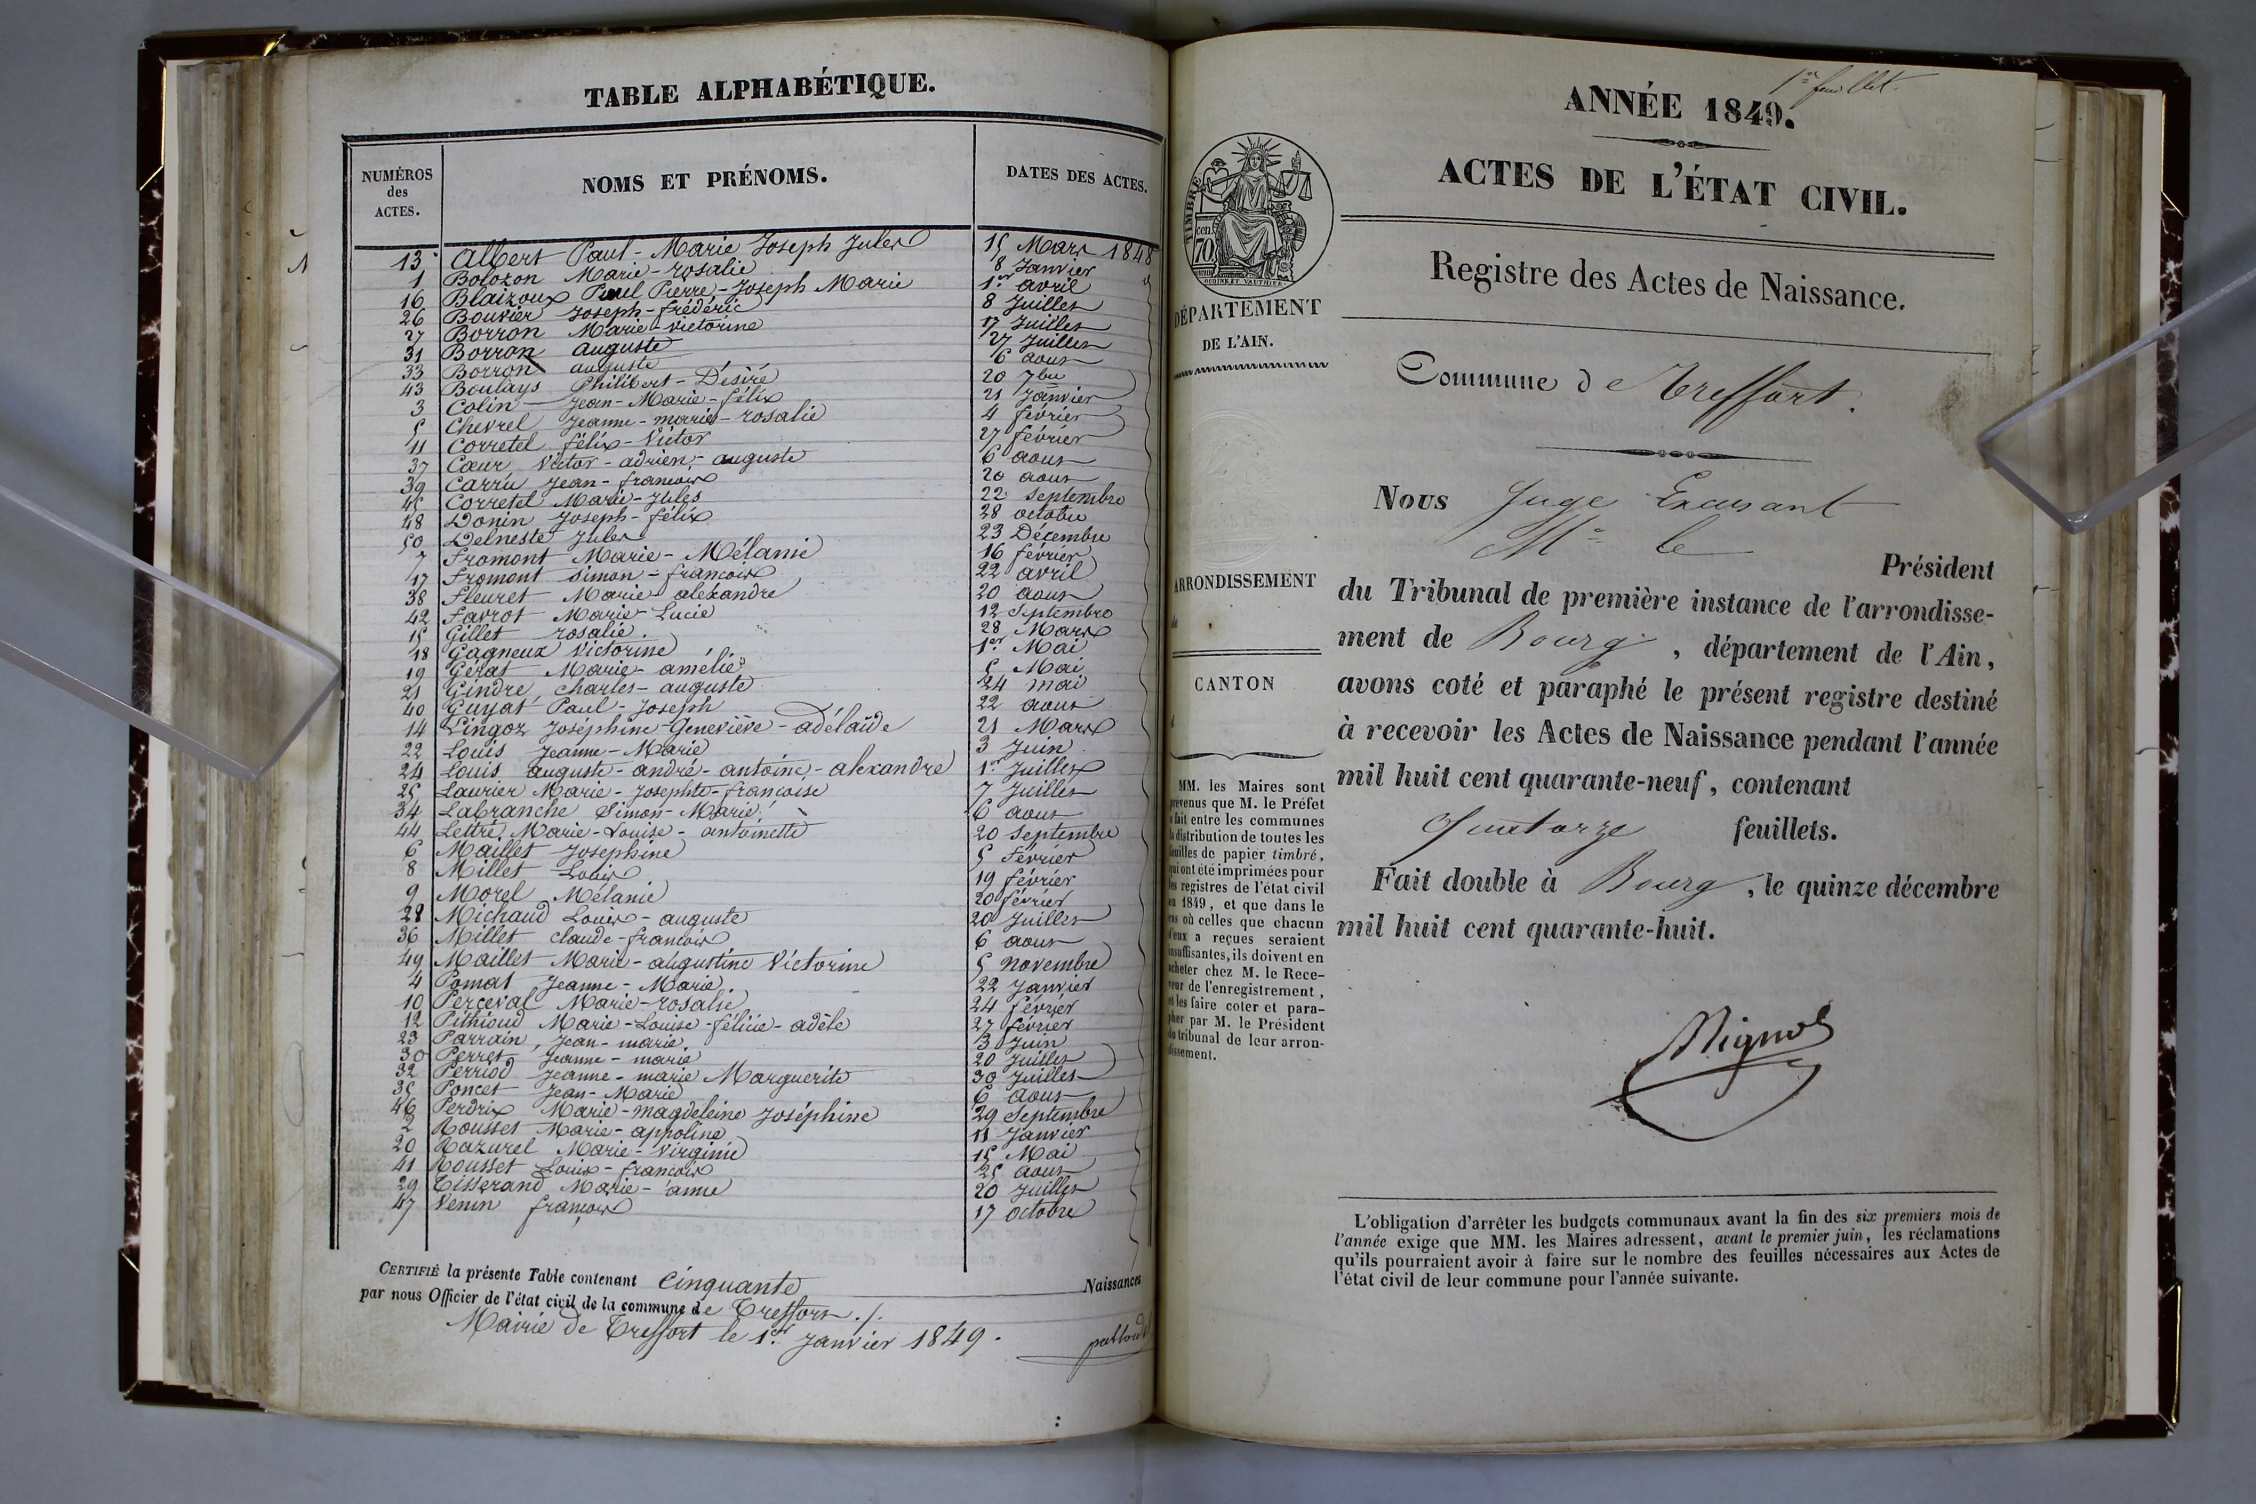 TABLE ALPHABÉTIQUE.
NUMÉROS des ACTES. NOMS ET PRÉNOMS. DATES DES ACTES.
13 Albert Paul-Marie Joseph Jules 15 Mars 1848
1 Bolozon Marie-rosalie 8 Janvier
16 Blaizoux Paul Pierre-Joseph Marie 1er avril
26 Bouvier Joseph-frédéric 8 Juillet
27 Borron Marie-victorine 17 Juillet
31 Borron auguste 27 Juillet
33 Borron auguste 6 aout
43 Boulays Philibert-Désiré 20 7bre
3 Colin Jean-Marie-félix 21 Janvier
5 Chevrel Jeanne-marie-rosalie 4 février
11 Corretel félix-Victor 27 février
37 Cœur Victor-adrien-auguste 6 aout
39 Carru Jean-francois 20 aout
45 Corretel Marie-Jules 22 Septembre
48 Donin Joseph-félix 28 octobre
50 Delneste Jules 23 Décembre
7 Fromont Marie-Mélanie 16 février
17 Fromont Simon-francois 22 avril
38 Fleuret Marie-aléxandre 20 aout
42 Favrot Marie-Lucie 12 Septembre
15 Gillet rosalie. 28 Mars
18 Gagneux Victorine 1er Mai
19 Gérat Marie-amélie 5 Mai
21 Gindre, charles-auguste 24 mai
40 Guyat Paul-Joseph 22 aout
14 Lingoz Joséphine-Geneviève-adélaïde 21 Mars
22 Louis Jeanne-Marie 3 Juin
24 Louis auguste-andré-antoine-alexandre 1er Juillet
25 Laurier Marie-Josephte-francoise 7 Juillet
34 Labranche Simon-Marie 6 aout
44 Lettré, Marie-Louise-antoinette 20 Septembre
6 Maillet Joséphine 5 Février
8 Millet Louis 19 février
9 Morel Mélanie 20 février
28 Michaud Louis-auguste 20 Juillet
36 Millet claude-francois 6 aout
49 Maillet Marie-augustine Victorine 5 novembre
4 Pomat Jeanne-Marie. 22 Janvier
10 Perceval Marie-rosalie 24 février
12 Pithioud Marie-Louise-félicie-adèle 27 février
23 Parrain, Jean-marie. 3 Juin
30 Perret Jeanne-marie 20 Juillet
32 Perriod Jeanne-marie Marguerite 30 Juillet
35 Poncet Jean-Marie 6 aout
46 Perdrix Marie-magdeleine Joséphine 29 Septembre
2 Rousset Marie-appoline 11 Janvier
20 Razurel Marie-Virginie 15 Mai
41 Rousset Louis-francois 25 aout
29 Tisserand Marie-anne 20 Juillet
47 Venin françois 17 octobre
CERTIFIÉ la présente Table contenant Cinquante Naissances
par nous Officier de l'état civil de la commune de Treffort ./.
Mairie de Treffort le 1er Janvier 1849.
1er feuillet.
ANNÉE 1849.
ACTES DE L'ÉTAT CIVIL.
Registre des Actes de Naissance.
TIMBRE
cen. 70
DÉPARTEMENT
DE L'AIN.
Commune de Treffort.
Nous Juge Exerçant
Mr le
Président
du Tribunal de première instance de l'arrondisse-
ment de Bourg, département de l'Ain,
avons coté et paraphé le présent registre destiné
à recevoir les Actes de Naissance pendant l'année
mil huit cent quarante-neuf, contenant
quatorze feuillets.
Fait double à Bourg, le quinze décembre
mil huit cent quarante-huit.
Mignot
ARRONDISSEMENT
CANTON
MM. les Maires sont
prévenus que M. le Préfet
a fait entre les communes
la distribution de toutes les
feuilles de papier timbré,
qui ont été imprimées pour
les registres de l'état civil
en 1849, et que dans le
cas où celles que chacun
d'eux a reçues seraient
insuffisantes, ils doivent en
acheter chez M. le Rece-
veur de l'enregistrement,
et les faire coter et para-
pher par M. le Président
du tribunal de leur arron-
dissement.
L'obligation d'arrêter les budgets communaux avant la fin des six premiers mois de
l'année exige que MM. les Maires adressent, avant le premier juin, les réclamations
qu'ils pourraient avoir à faire sur le nombre des feuilles nécessaires aux Actes de
l'état civil de leur commune pour l'année suivante.